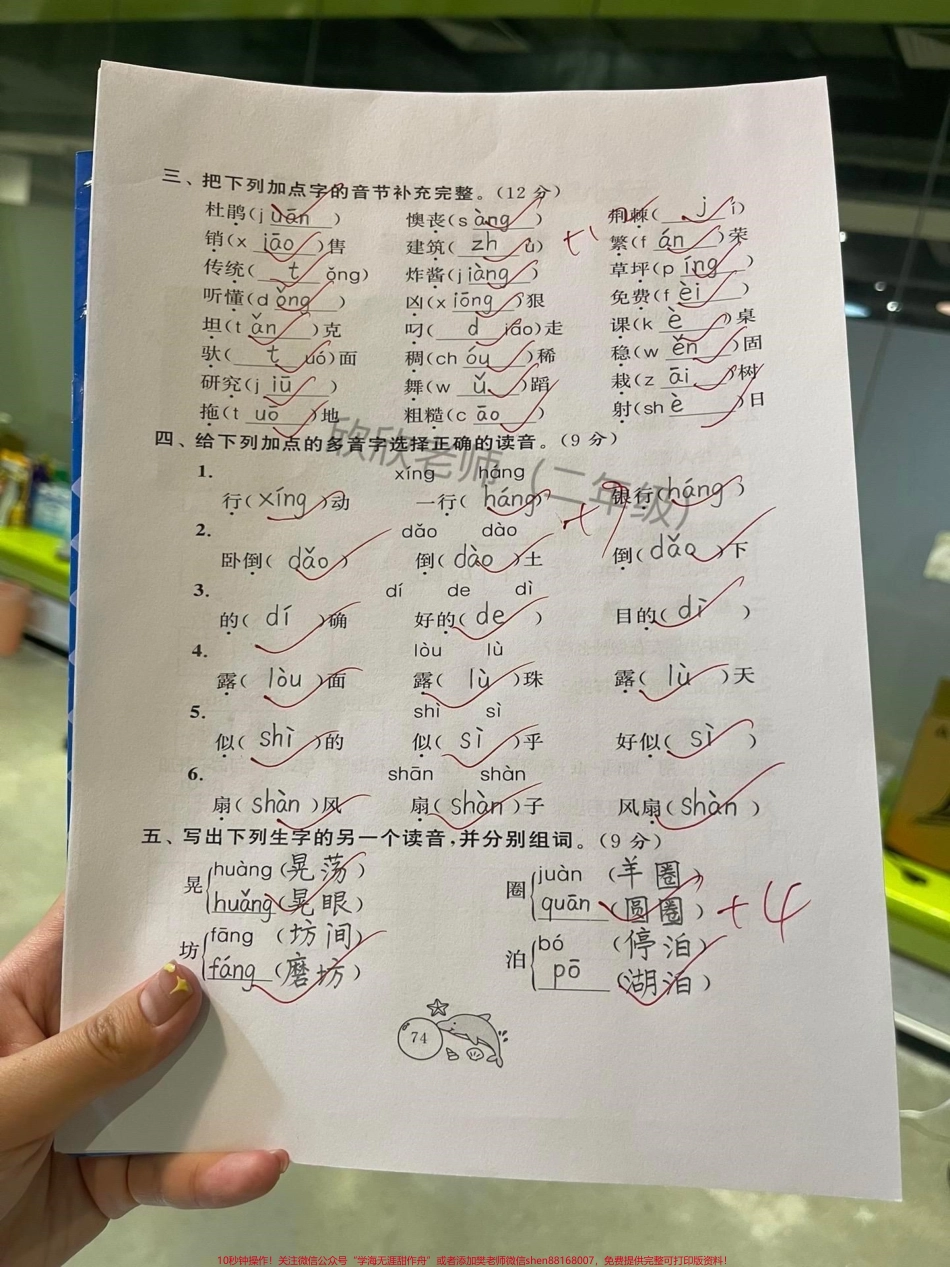 三、把下列加点字的音节补充完整。(12分)
杜鹃(juān) 懊丧(sàng) 荆棘(jí)
销(xiāo)售 建筑(zhù) +1 繁(fán)荣
传统(tǒng) 炸酱(jiàng) 草坪(píng)
听懂(dǒng) 凶(xiōng)狠 免费(fèi)
坦(tǎn)克 叼(diāo)走 课(kè)桌
驮(tuó)面 稠(chóu)稀 稳(wěn)固
研究(jiū) 舞(wǔ)蹈 栽(zāi)树
拖(tuō)地 粗糙(cāo) 射(shè)日
四、给下列加点的多音字选择正确的读音。(9分)
1. xíng háng
行(xíng)动 一行(háng) +9 银行(háng)
2. dǎo dào
卧倒(dǎo) 倒(dào)土 倒(dǎo)下
3. dí de dì
的(dí)确 好的(de) 目的(dì)
4. lòu lù
露(lòu)面 露(lù)珠 露(lù)天
5. shì sì
似(shì)的 似(sì)乎 好似(sì)
6. shān shàn
扇(shàn)风 扇(shàn)子 风扇(shàn)
五、写出下列生字的另一个读音,并分别组词。(9分)
晃 huàng(晃荡) 圈 juàn(羊圈)
huǎng(晃眼) quān(圆圈) +4
坊 fāng(坊间) 泊 bó(停泊)
fáng(磨坊) pō(湖泊)
74
欣欣老师(二年级)
10秒钟操作!关注微信公众号“学海无涯甜作舟”或者添加樊老师微信shen88168007,免费提供完整可打印版资料!